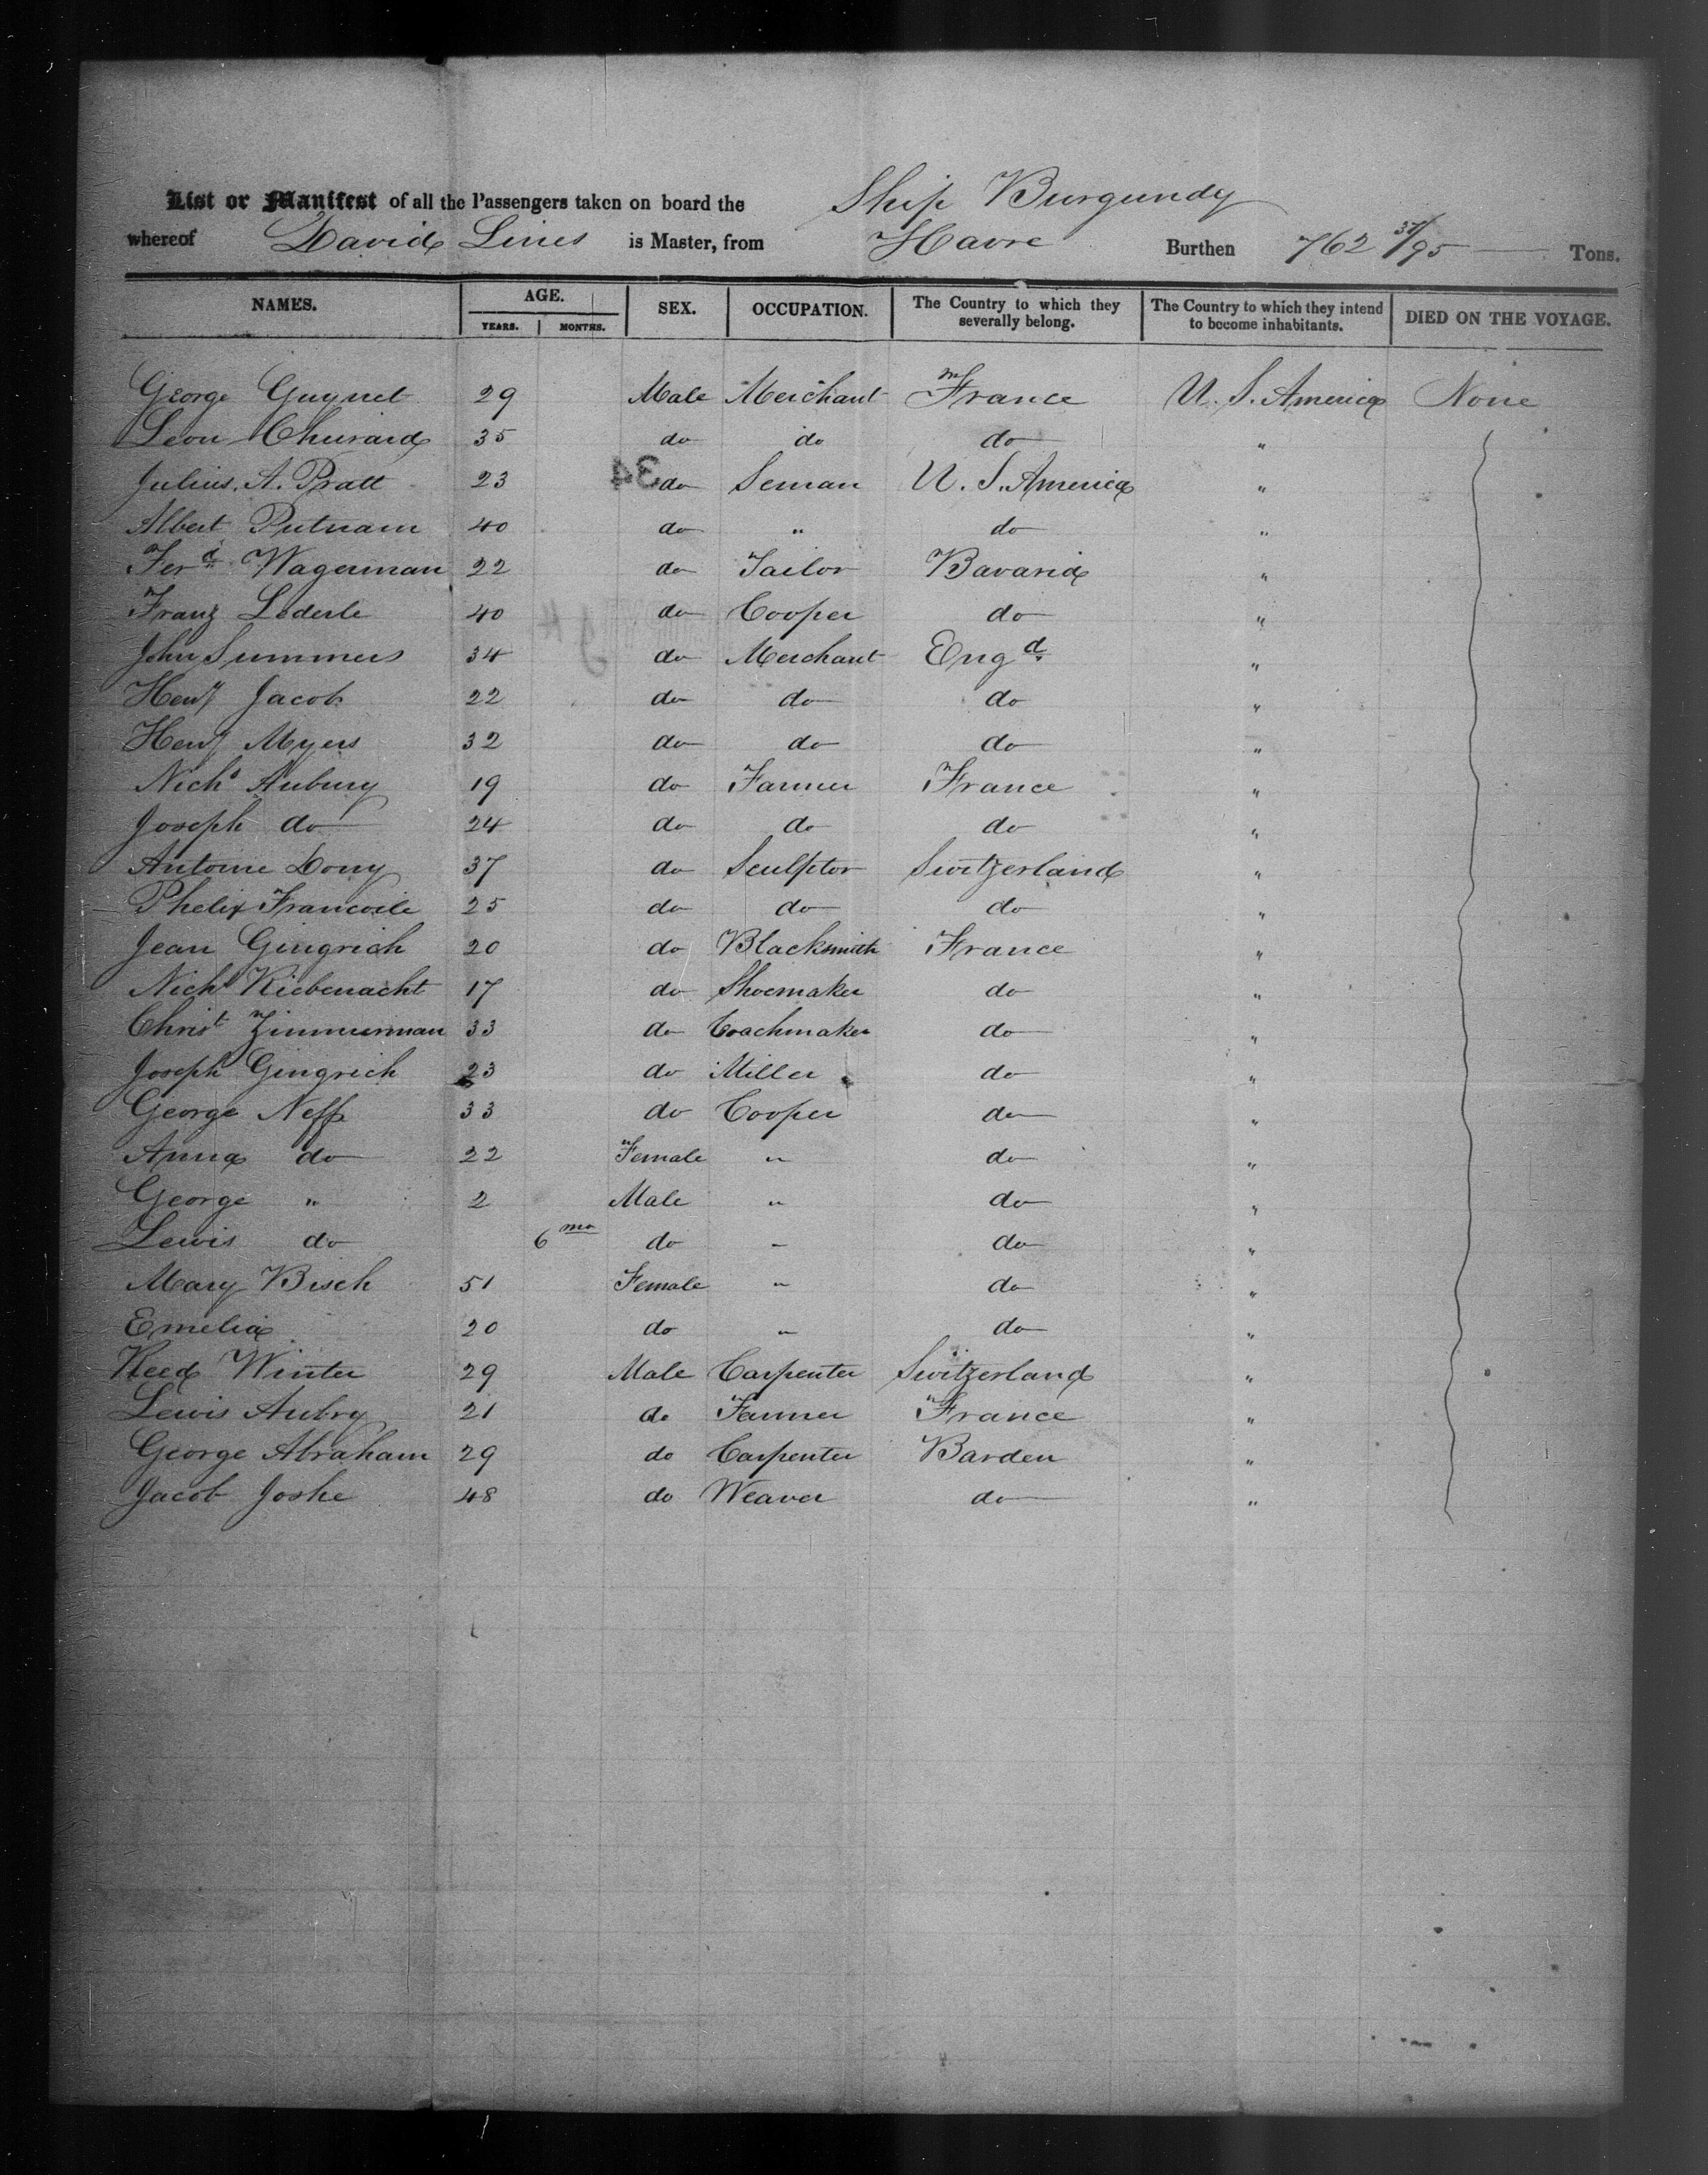 List or Manifest of all the Passengers taken on board the Ship Burgundy
whereof David Lines is Master, from Havre Burthen 762 /95 Tons.
NAMES. AGE. YEARS. MONTHS. SEX. OCCUPATION. The Country to which they severally belong. The Country to which they intend to become inhabitants. DIED ON THE VOYAGE.
George Guynet 29 Male Merchant France U. S. America None
Leon 35 do do do "
34
Julius. A. Pratt 23 do Seman U. S. America "
Albert Putnam 40 do " do "
Ferd Wagerman 22 do Tailor Bavaria "
Franz Lederle 40 do Cooper do "
John Summers 34 do Merchant Engd "
Heny Jacob 22 do do do "
Heny Myers 32 do do do "
Nichs Aubury 19 do Farmer France "
Joseph do 24 do do do "
Antoine Dony 37 do Sculptor Switzerland "
Phelix 25 do do do "
Jean Gingrich 20 do Blacksmith France "
Nichs Kiebenacht 17 do Shoemaker do "
Christ Zimmerman 33 do Coachmaker do "
Joseph Gingrich 23 do Miller do "
George Neff 33 do Cooper do "
Anna do 22 Female " do "
George " 2 Male " do "
Lewis do 6 mo do " do "
Mary Bisch 51 Female " do "
Emelia 20 do " do "
Winter 29 Male Carpenter Switzerland "
Lewis Aubry 21 do Farmer France "
George Abraham 29 do Carpenter Barden "
Jacob Joske 48 do Weaver do "